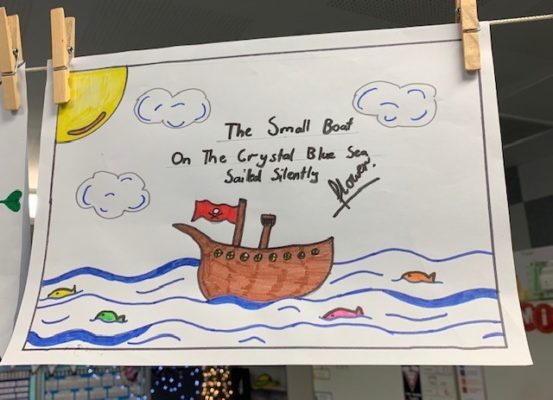 The Small Boat
On The Crystal Blue Sea
Sailed Silently
flower.